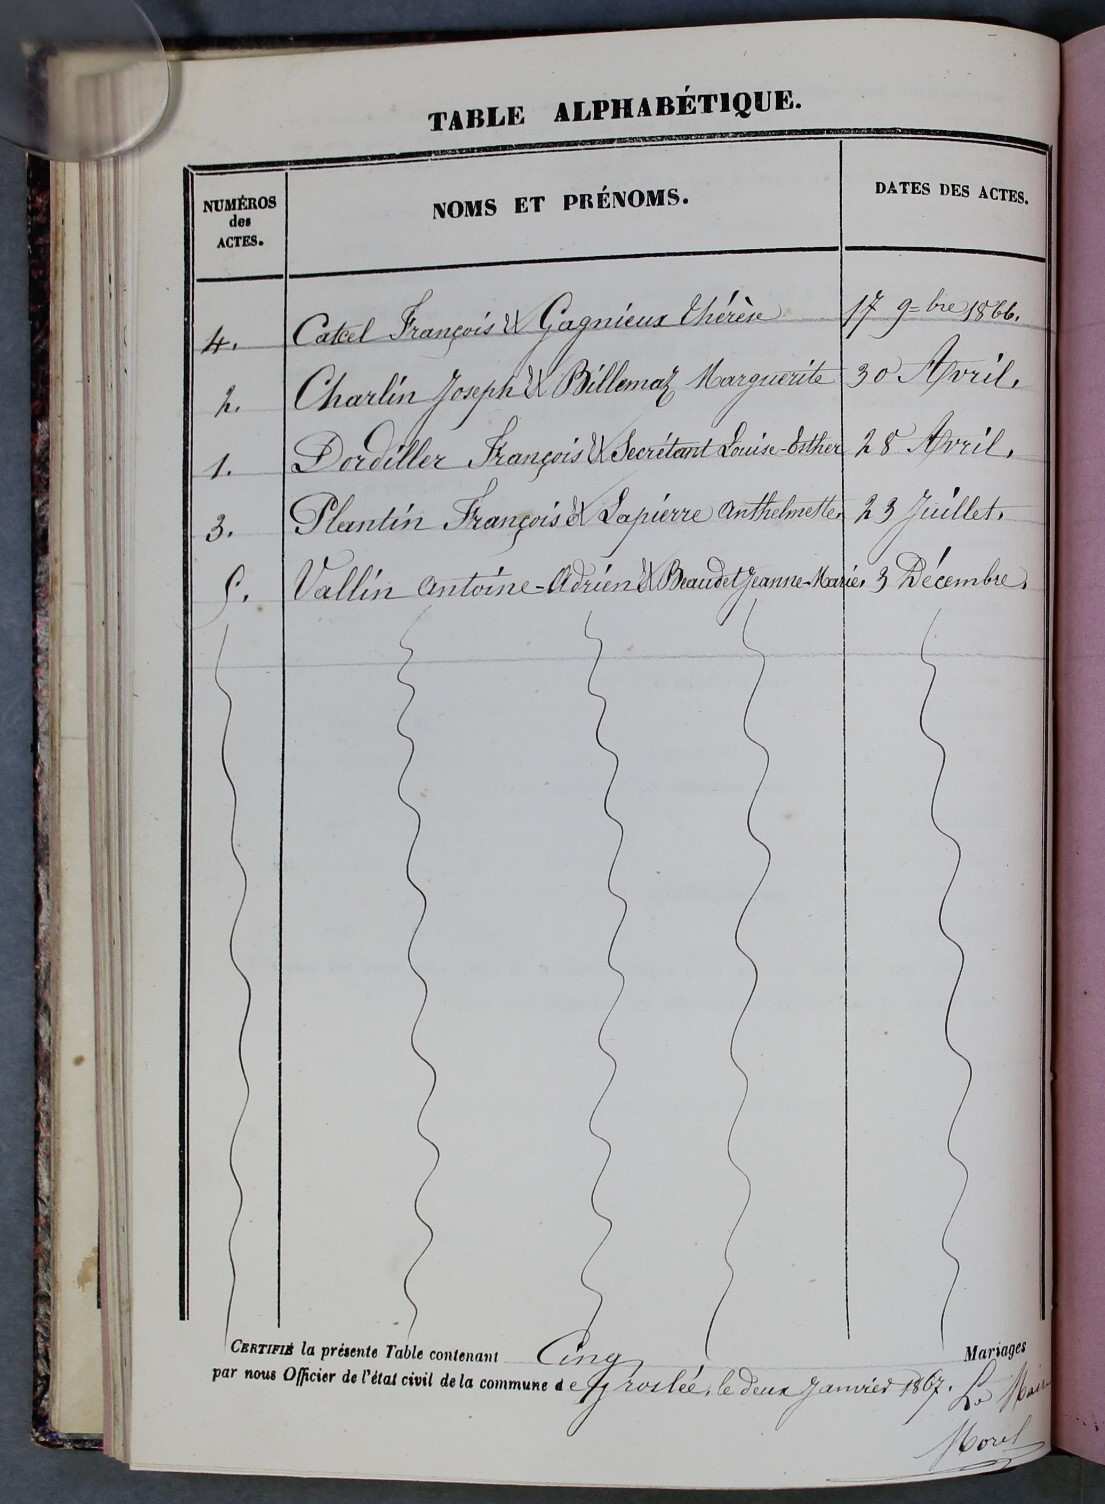 TABLE ALPHABÉTIQUE.
NUMÉROS
des
ACTES.
NOMS ET PRÉNOMS.
DATES DES ACTES.
4. Catcel François & Gagnieux Thérèse 17 9=bre 1866.
2. Charlin Joseph & Billemaz Marguerite 30 Avril.
1. Dordiller François & Secrétant Louise-Esther 28 Avril.
3. Plantin François & Lapierre Anthelmette. 23 Juillet.
5. Vallin Antoine-Adrien & Beaudet Jeanne-Marie. 3 Décembre.
CERTIFIÉ la présente Table contenant Cinq Mariages
par nous Officier de l'état civil de la commune de Groslée, le deux Janvier 1867. Le Maire
Morel